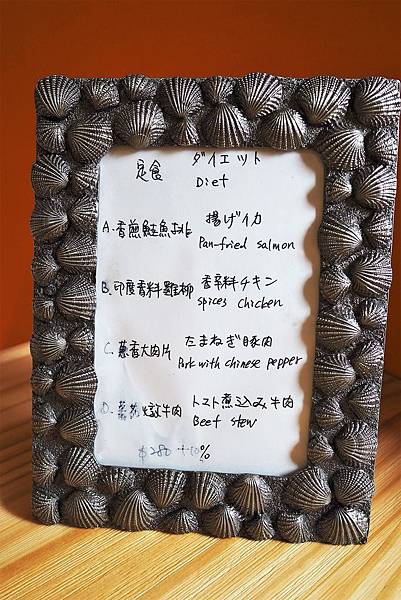 定食 ダイエット
Diet
A. 香煎鮭魚排 揚げイカ
Pan-fried salmon
B. 印度香料雞柳 香辛料チキン
Spices chicken
C. 蔥香大肉片 たまねぎ豚肉
Pork with chinese pepper
D. 燉牛肉 トマト煮込み牛肉
Beef stew
$280 +10%